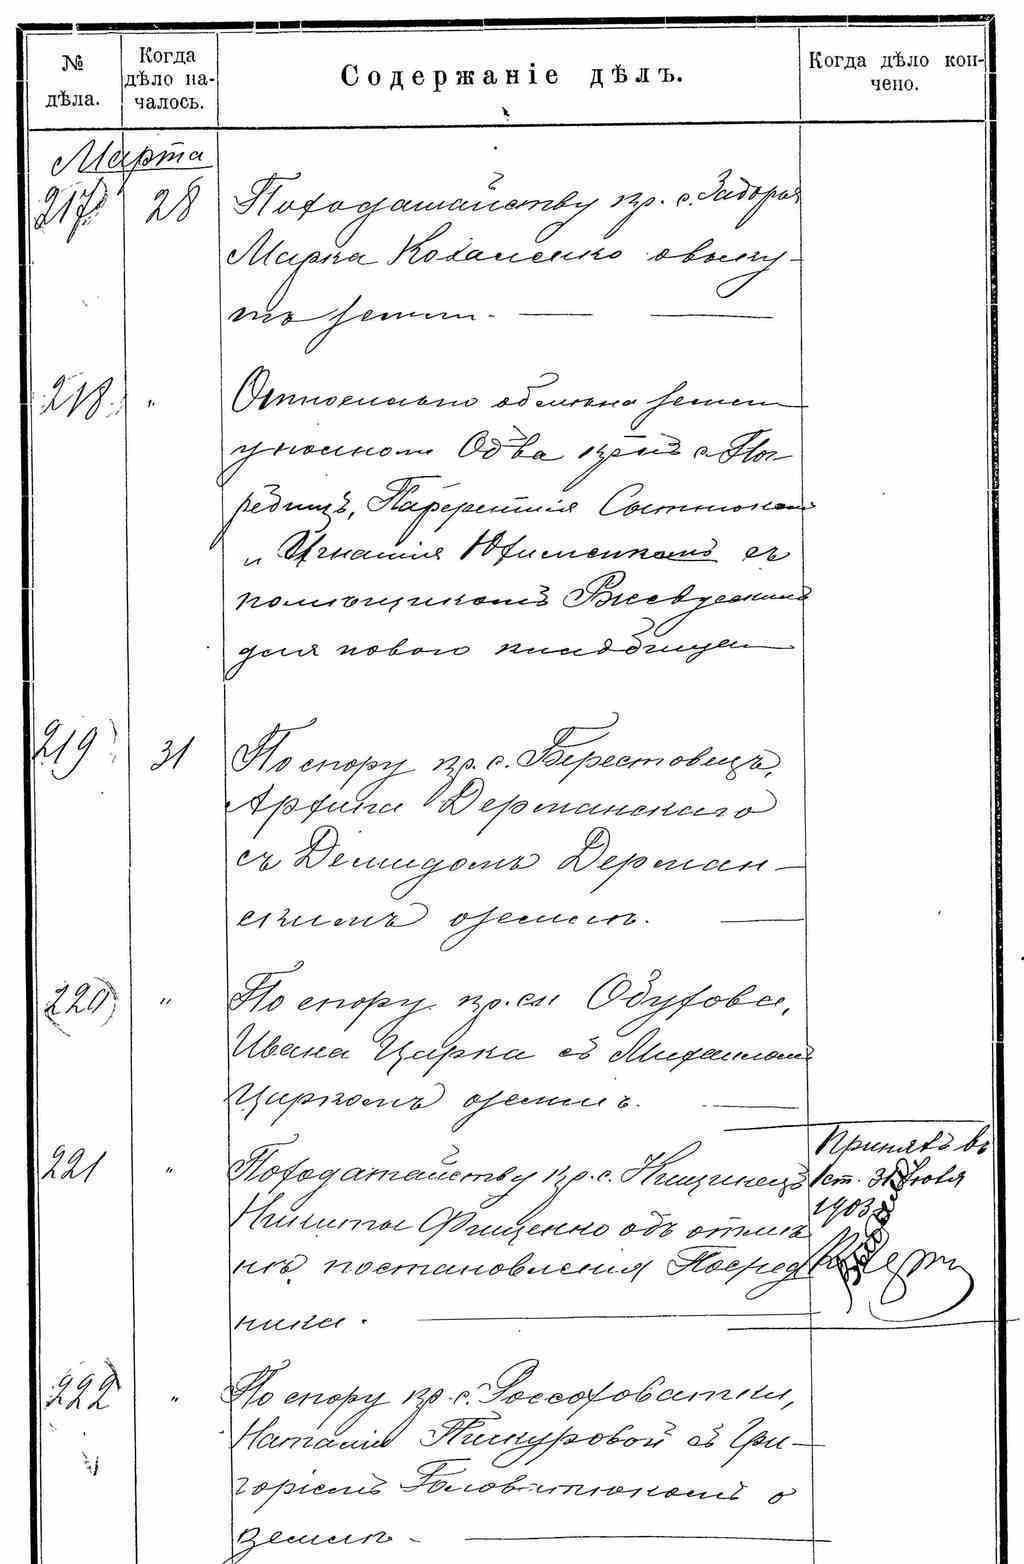 № дѣла.
Когда дѣло на-
чалось.
Содержаніе дѣлъ.
Когда дѣло кон-
чено.
Марта
217 28 По ходатайству кр. с. Задорья
Марка Коваленко о выку-
пѣ земли.
218 " Относительно обмѣна земли
Об-ва кр-нъ с. Пог-
ребищъ, Парфентія
и Игнатія Юхименкомъ съ
помѣщикомъ Ржевускимъ
для новаго кладбища
219 31 По спору кр. с. Берестовецъ,
Архипа Дерманскаго
съ Демидомъ Дерман-
скимъ о землѣ.
220 " По спору кр. с. Обуховa,
Ивана Царка съ Михаиломъ
Царкомъ о землѣ.
221 " По ходатайству кр. с. Кищинецъ
Никиты Фищенко объ отмѣ
нѣ постановленія Посред
ника.
Принятъ въ
ст. 31 Іюля
1903
222 " По спору кр. с. Россоховатки,
Наталіи Пикуровой съ Гри-
горіемъ Головатюкомъ о
землѣ.